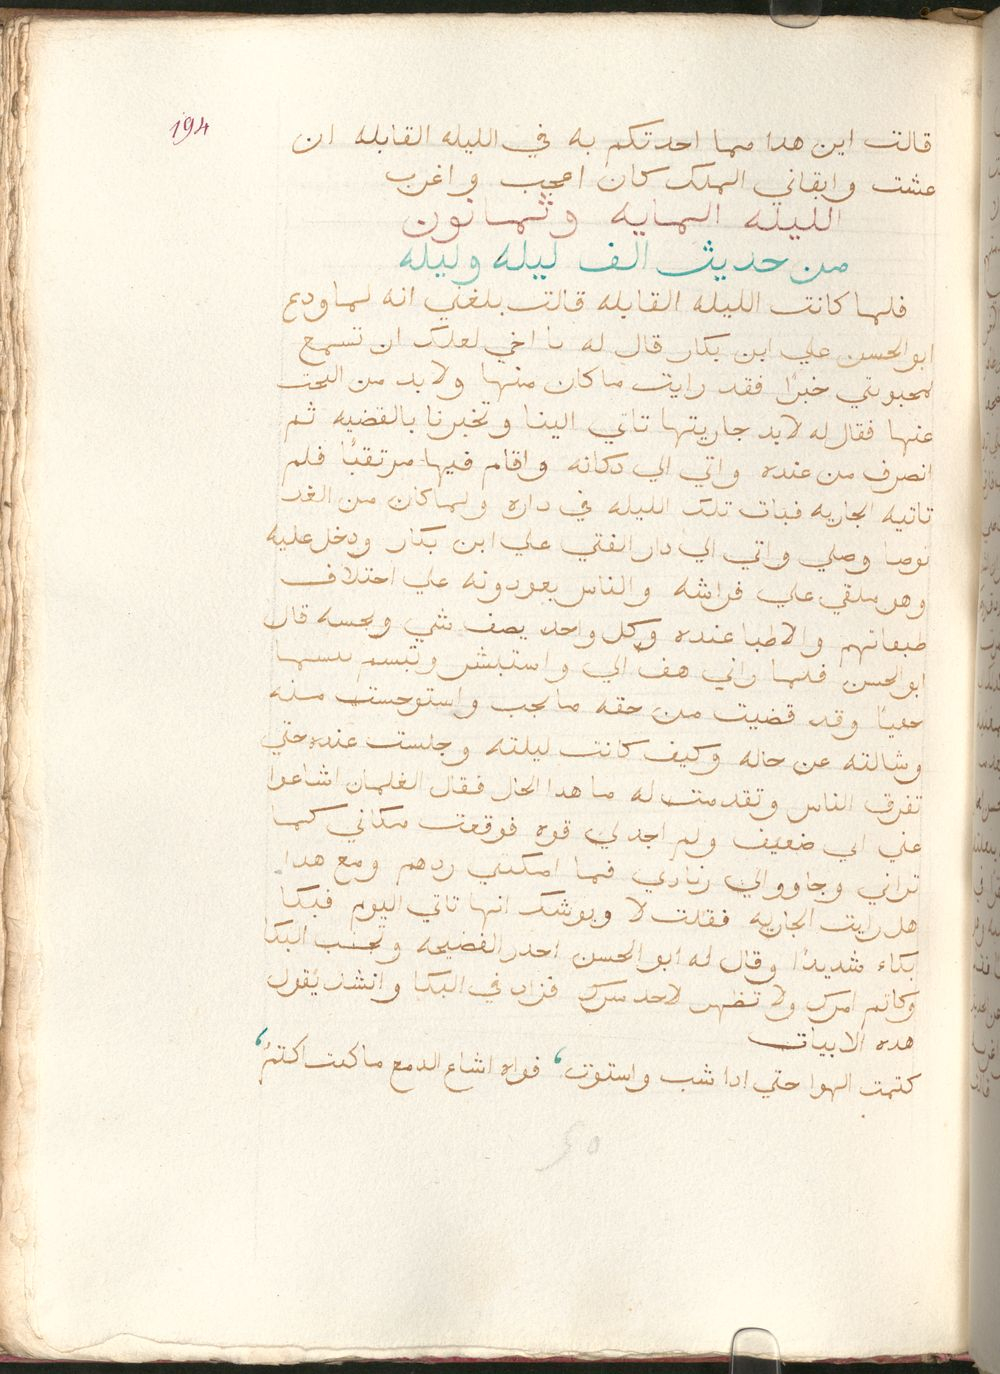 194
قالت اين هدا مما احدتكم به في الليله القابله ان
عشت وابقاني الملك كان اعجب واغرب
الليله المايه وثمانون
من حديث الف ليله وليله
فلما كانت الليله القابله قالت بلغني انه لما ودع
ابو الحسن علي ابن بكار قال له يا اخي لعلك ان تسمع
لمحبوبتي خبرًا فقد رايت ما كان منها ولا بد من البحت
عنها فقال له لابد جاريتها تاتي الينا وتخبرنا بالقضيه ثم
انصرف من عنده واتي الي دكانه واقام فيها مرتقبًا فلم
تاتيه الجاريه فبات تلك الليله في داره ولما كان من الغد
توضا وصلي واتي الي دار الفتي علي ابن بكار ودخل عليه
وهو ملقي علي فراشه والناس يعودونه علي اختلاف
طبقاتهم والاطبا عنده وكل واحد يصف شي ويجسه قال
ابو الحسن فلما راني هف الي واستبشر وتبسم تبسما
خفيًا وقد قضيت من حقه ما يجب واستوحست منه
وشالته عن حاله وكيف كانت ليلته وجلست عنده حتي
تفرق الناس وتقدمت له ما هدا الحال فقال الغلمان اشاعوا
عني اني ضعيف ولم اجد لي قوه فوقعت مكاني كما
تراني وجاووا لي زيادي فما امكنني ردهم ومع هدا
هل رايت الجاريه فقلت لا ويوشك انها تاتي اليوم فبكا
بكاء شديدًا وقال له ابو الحسن احدر الفضيحه وتجنب البكا
وكاتم امرك ولا تظهر لاحد سرك فزاد في البكا وانشد يقول
هده الابيات
كتمت الهوا حتي ادا شب واستوت، فواه اشاع الدمع ما كنت اكتمُ،